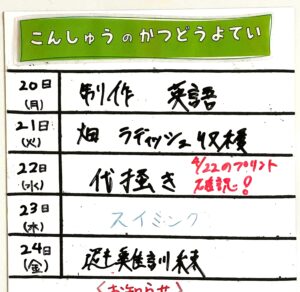 こんしゅうのかつどうよてい
20日(月) 制作 英語
21日(火) 畑 ラディッシュ収穫
22日(水) 代掻き 4/22のプリント確認!
23日(木) スイミング
24日(金) 避難訓練
<お知らせ>